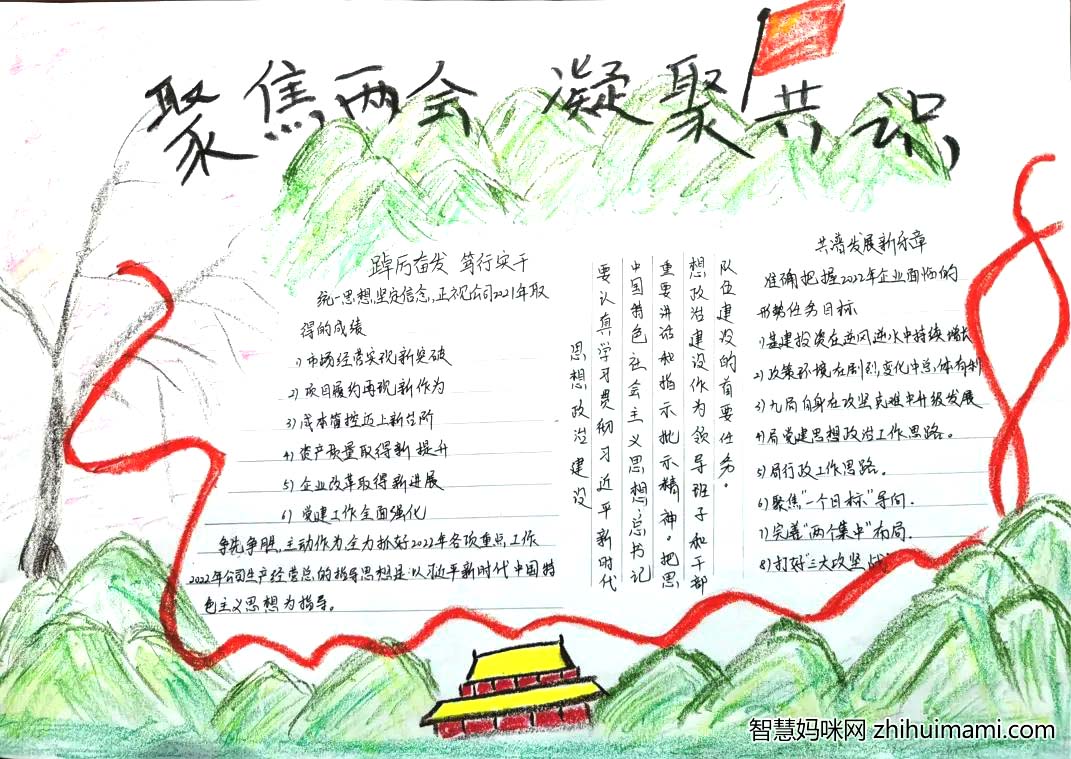 聚焦两会 凝聚共识
踔厉奋发 笃行实干
统一思想,坚定信念,正视公司2021年取
得的成绩
1)市场经营实现新突破
2)项目履约再现新作为
3)成本管控迈上新台阶
4)资产质量取得新提升
5)企业改革取得新进展
6)党建工作全面强化
争先争胆,主动作为全力抓好2022年各项重点工作
2022年公司生产经营总的指导思想是:以习近平新时代中国特
色主义思想为指导。
思想政治建设
要认真学习贯彻习近平新时代
中国特色社会主义思想,总书记
重要讲话和指示批示精神。把思
想政治建设作为领导班子和干部
队伍建设的首要任务。
共谱发展新乐章
准确把握2022年企业面临的
形势任务目标
1)基建投资在逆风逆水中持续增长
2)政策环境在剧烈变化中总体有利
3)九局自身在攻坚克难中升级发展
4)局党建思想政治工作思路。
5)局行政工作思路。
6)聚焦"一个目标"导向.
7)完善"两个集中"布局.
8)打好"三大攻坚战"
智慧妈咪网 zhihuimami.com